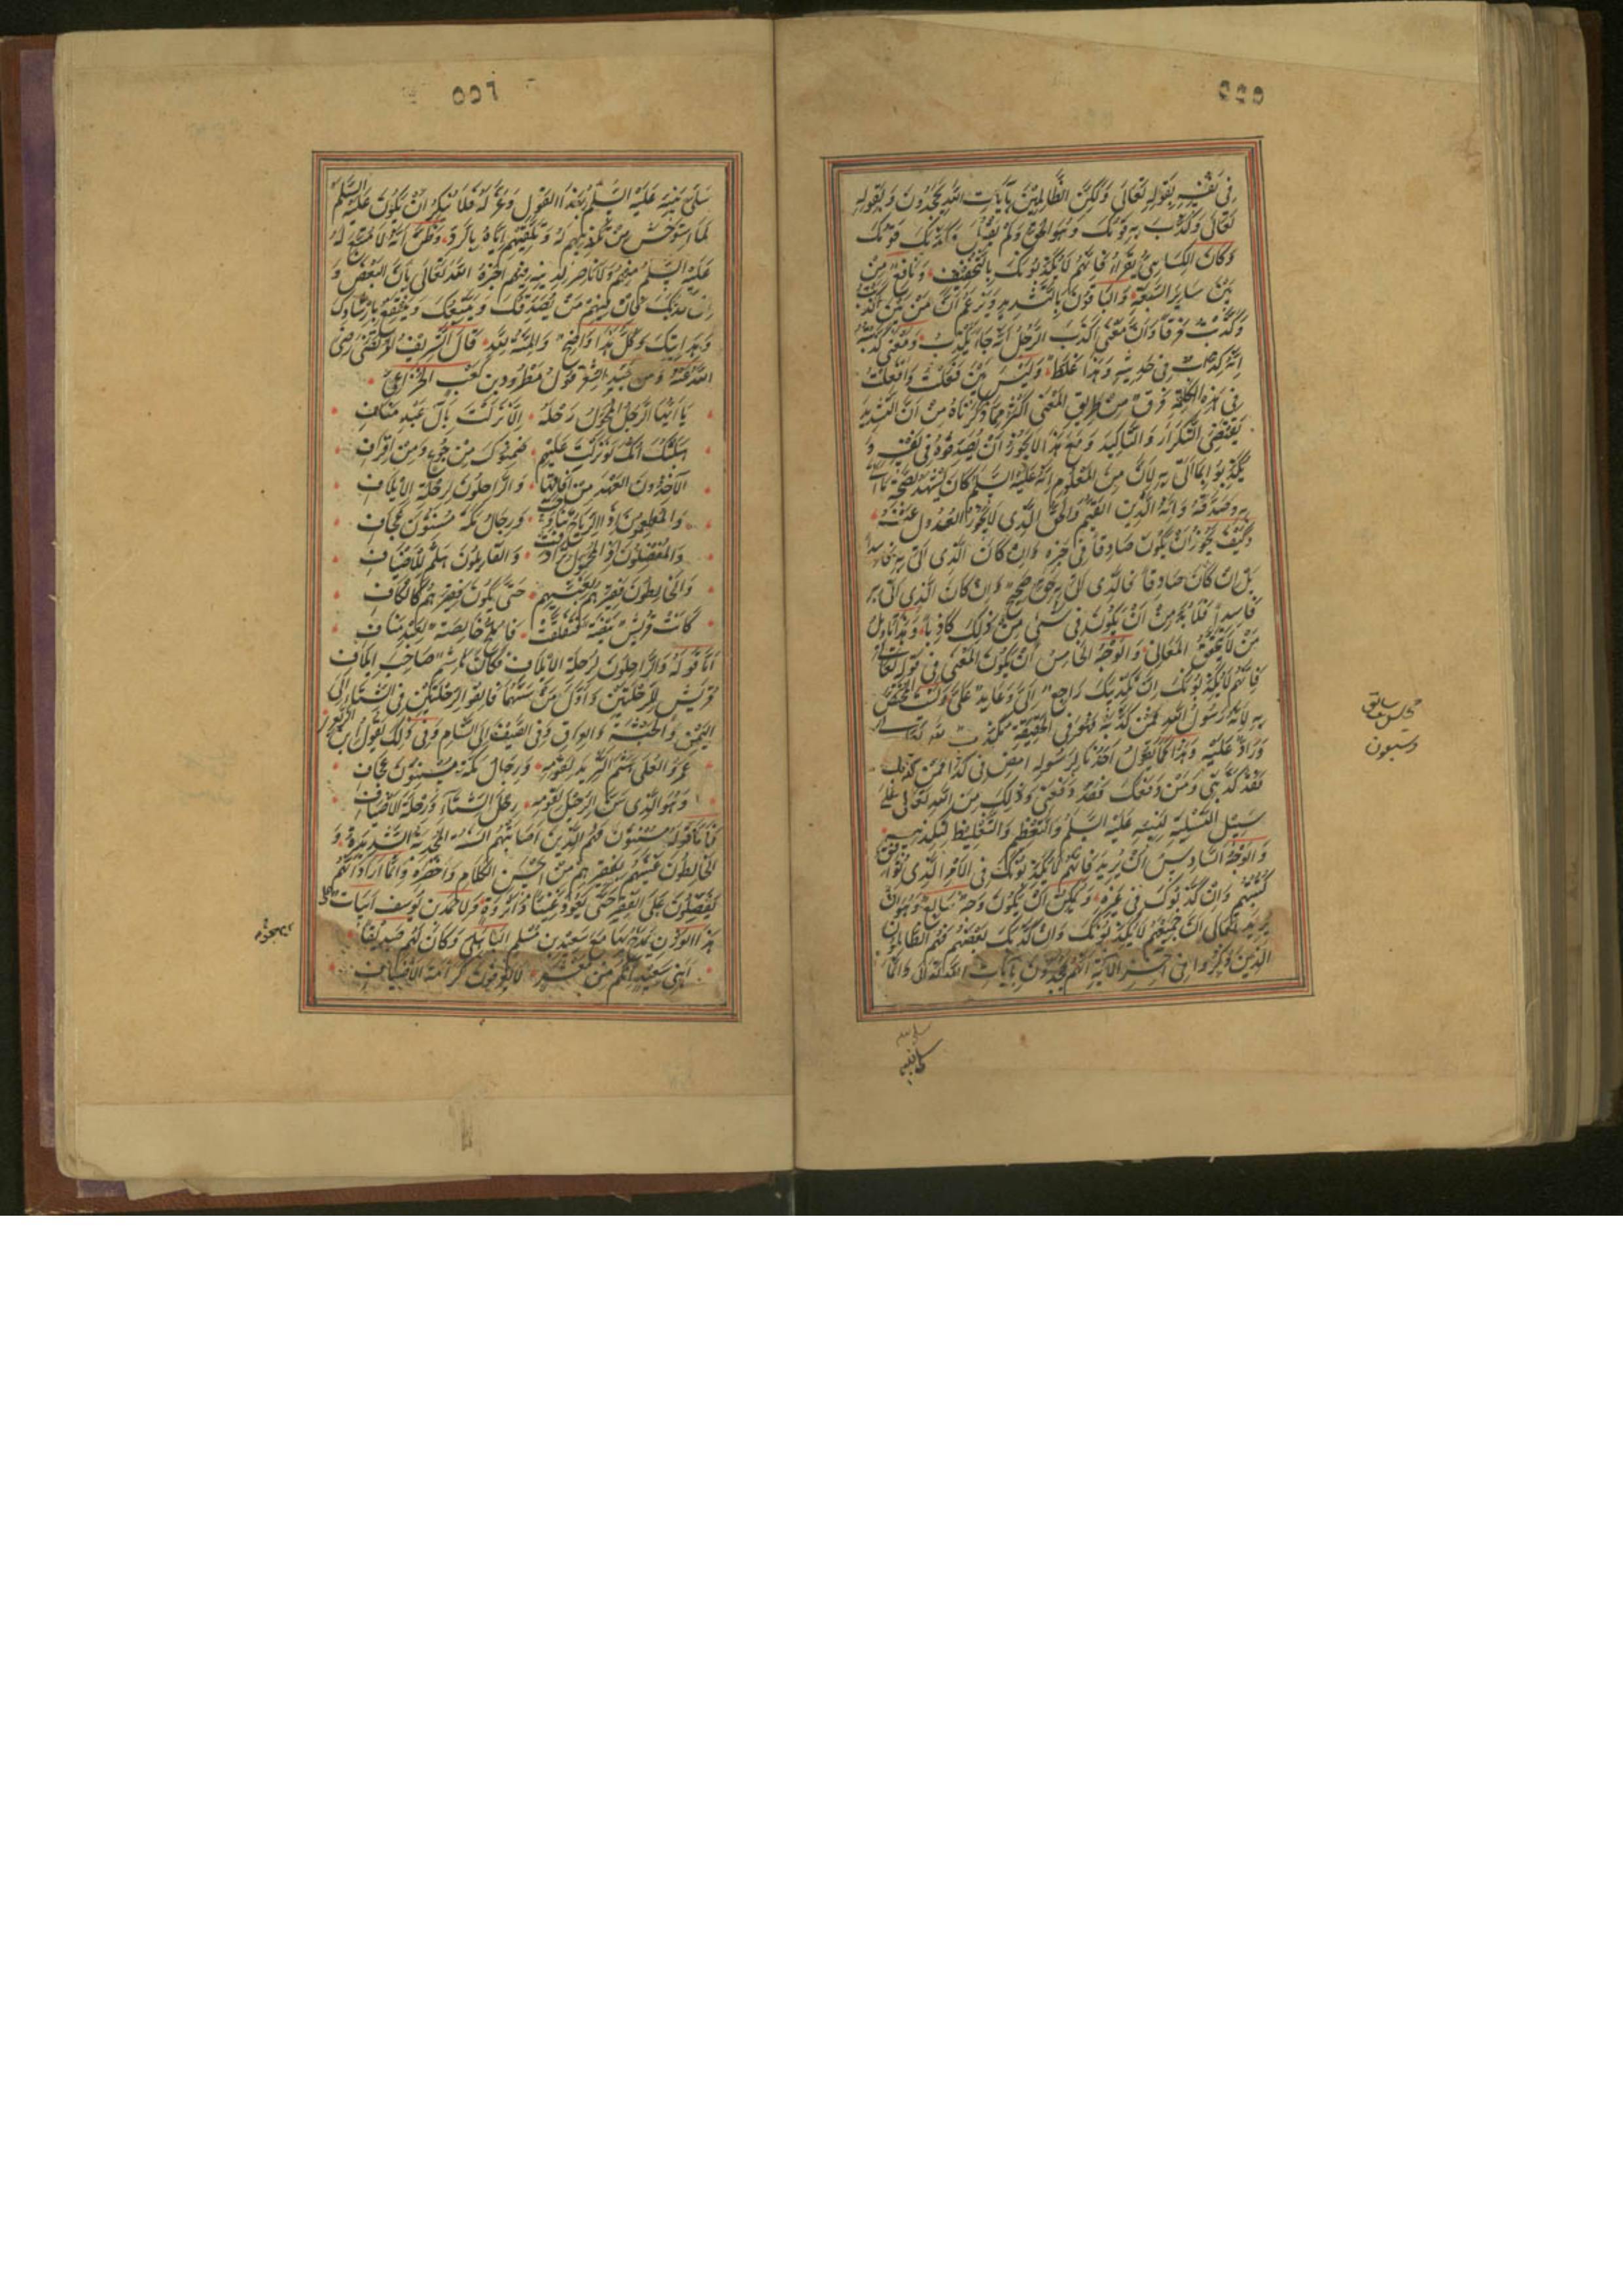 ٥٥٥
في نفسه بقوله تعالى ولكن الظالمين بآيات الله يجحدون وبقوله
تعالى وكذب به قومك وهو الحق ولم يقل وكذبك قومك
وكان الكسائي يقرأ فانهم لا يكذبونك بالتخفيف ونافع من
بين ساير السبعة والباقون بالتشديد ويزعم ان بين اكذب
وكذب فرقا وان معنى اكذب الرجل انه جاء بكذب ومعنى كذبته
انه كذاب في حديثه وهذا غلط وليس بين فعلت وافعلت
في هذه الكلمة فرق من طريق المعنى اكثر مما ذكرناه من ان التشديد
يقتضي التكرار والتاكيد ومع هذا لا يجوز ان يصدقوه في نفسه و
يكذبوا بما اتى به لان من المعلوم انه عليه السلم كان يشهد بصحة ما اتى
به وصدقه وانه الدين القيم والحق الذي لا يجوز العدول عنه
وكيف يجوز ان يكون صادقا في خبره وان كان الذي اتى به فاسدا
بل ان كان صادقا فالذي اتى به حق صحيح وان كان الذي اتى به
فاسدا فلا بد من ان يكون في شيء من ذلك كاذبا وهذا تاويل
من لا يتحقق المعاني والوجه الخامس ان يكون المعنى في قوله تعالى
فانهم لا يكذبونك ان تكذيبك راجع الي وعايد علي ولست المختص
به لانه رسول الله فمن كذبه فهو في الحقيقة مكذب
وراد عليه وهذا كما يقول احدنا لرسوله امض في كذا فمن كذبك
فقد كذبني ومن دفعك فقد دفعني وذلك من الله تعالى على
سبيل التسلية لنبيه عليه السلم والتعظيم والتغليظ لتكذيبه
والوجه السادس ان يريد فانهم لا يكذبونك في الامر الذي يوافق
كتبهم وان كذبوك في غيره ويمكن ان يكون وجه سابع وهو ان
يريد تعالى ان جميعهم لا يكذبونك وان كذبك بعضهم فهم الظالمون
الذين ذكروا في اخر الآية انهم يجحدون بآيات الله تعالى وانما
سلى نبيه
مجلس سابع
وسبعون
٥٥٦
سلى نبيه عليه السلم بهذا القول وعزاه فلا ينكر ان يكون عليه السلم
لما استوحش من تكذيبهم له وتلقيهم اياه بالرد وظن انه لا متبع له
عليه السلم منهم ولا ناصر لدينه فيهم اخبره الله تعالى بان البعض و
ان كذبك فان فيهم من يصدقك ويتبعك وينتفع بارشادك
وهدايتك وكل هذا واضح والمنة لله قال الشريف المرتضى رضي
الله عنه ومن جيد الشعر قول مطرود بن كعب الخزاعي
يا ايها الرجل المحول رحله الا نزلت بآل عبد مناف
هبلتك امك لو نزلت عليهم ضمنوك من جوع ومن اقراف
الآخذون العهد من آفاقها والراحلون لرحلة الايلاف
والمطعمون اذا الرياح تناوحت ورجال مكة مسنتون عجاف
والمفضلون اذا المحول ترادفت والقايلون هلم للاضياف
والخالطون فقيرهم بغنيهم حتى يكون فقيرهم كالكافي
كانت قريش بيضة فتفلقت فالمح خالصة لعبد مناف
اما قوله والراحلون لرحلة الايلاف فكان هاشم صاحب ايلاف
قريش للرحلتين واول من سنهما فالفوا الرحلتين في الشتاء الى
اليمن والحبشة والعراق وفي الصيف الى الشام وفي ذلك يقول ابن الزبعرى
عمرو العلى هشم الثريد لقومه ورجال مكة مسنتون عجاف
وهو الذي سن الرحيل لقومه رحل الشتاء ورحلة الاضياف
فاما قوله مسنتون فهم الذين اصابتهم السنة المجدبة الشديدة و
الخالطون غنيهم بفقيرهم من احسن الكلام واخصره وانما اراد انهم
يفضلون على الفقير حتى يعود غنيا ذا ثروة ولاحمد بن يوسف ابيات على
هذا الوزن يمدح بها بني سعيد بن مسلم الباهلي وكان لهم صديقا
ابني سعيد انكم من معشر لا يعرفون كرامة الاضياف